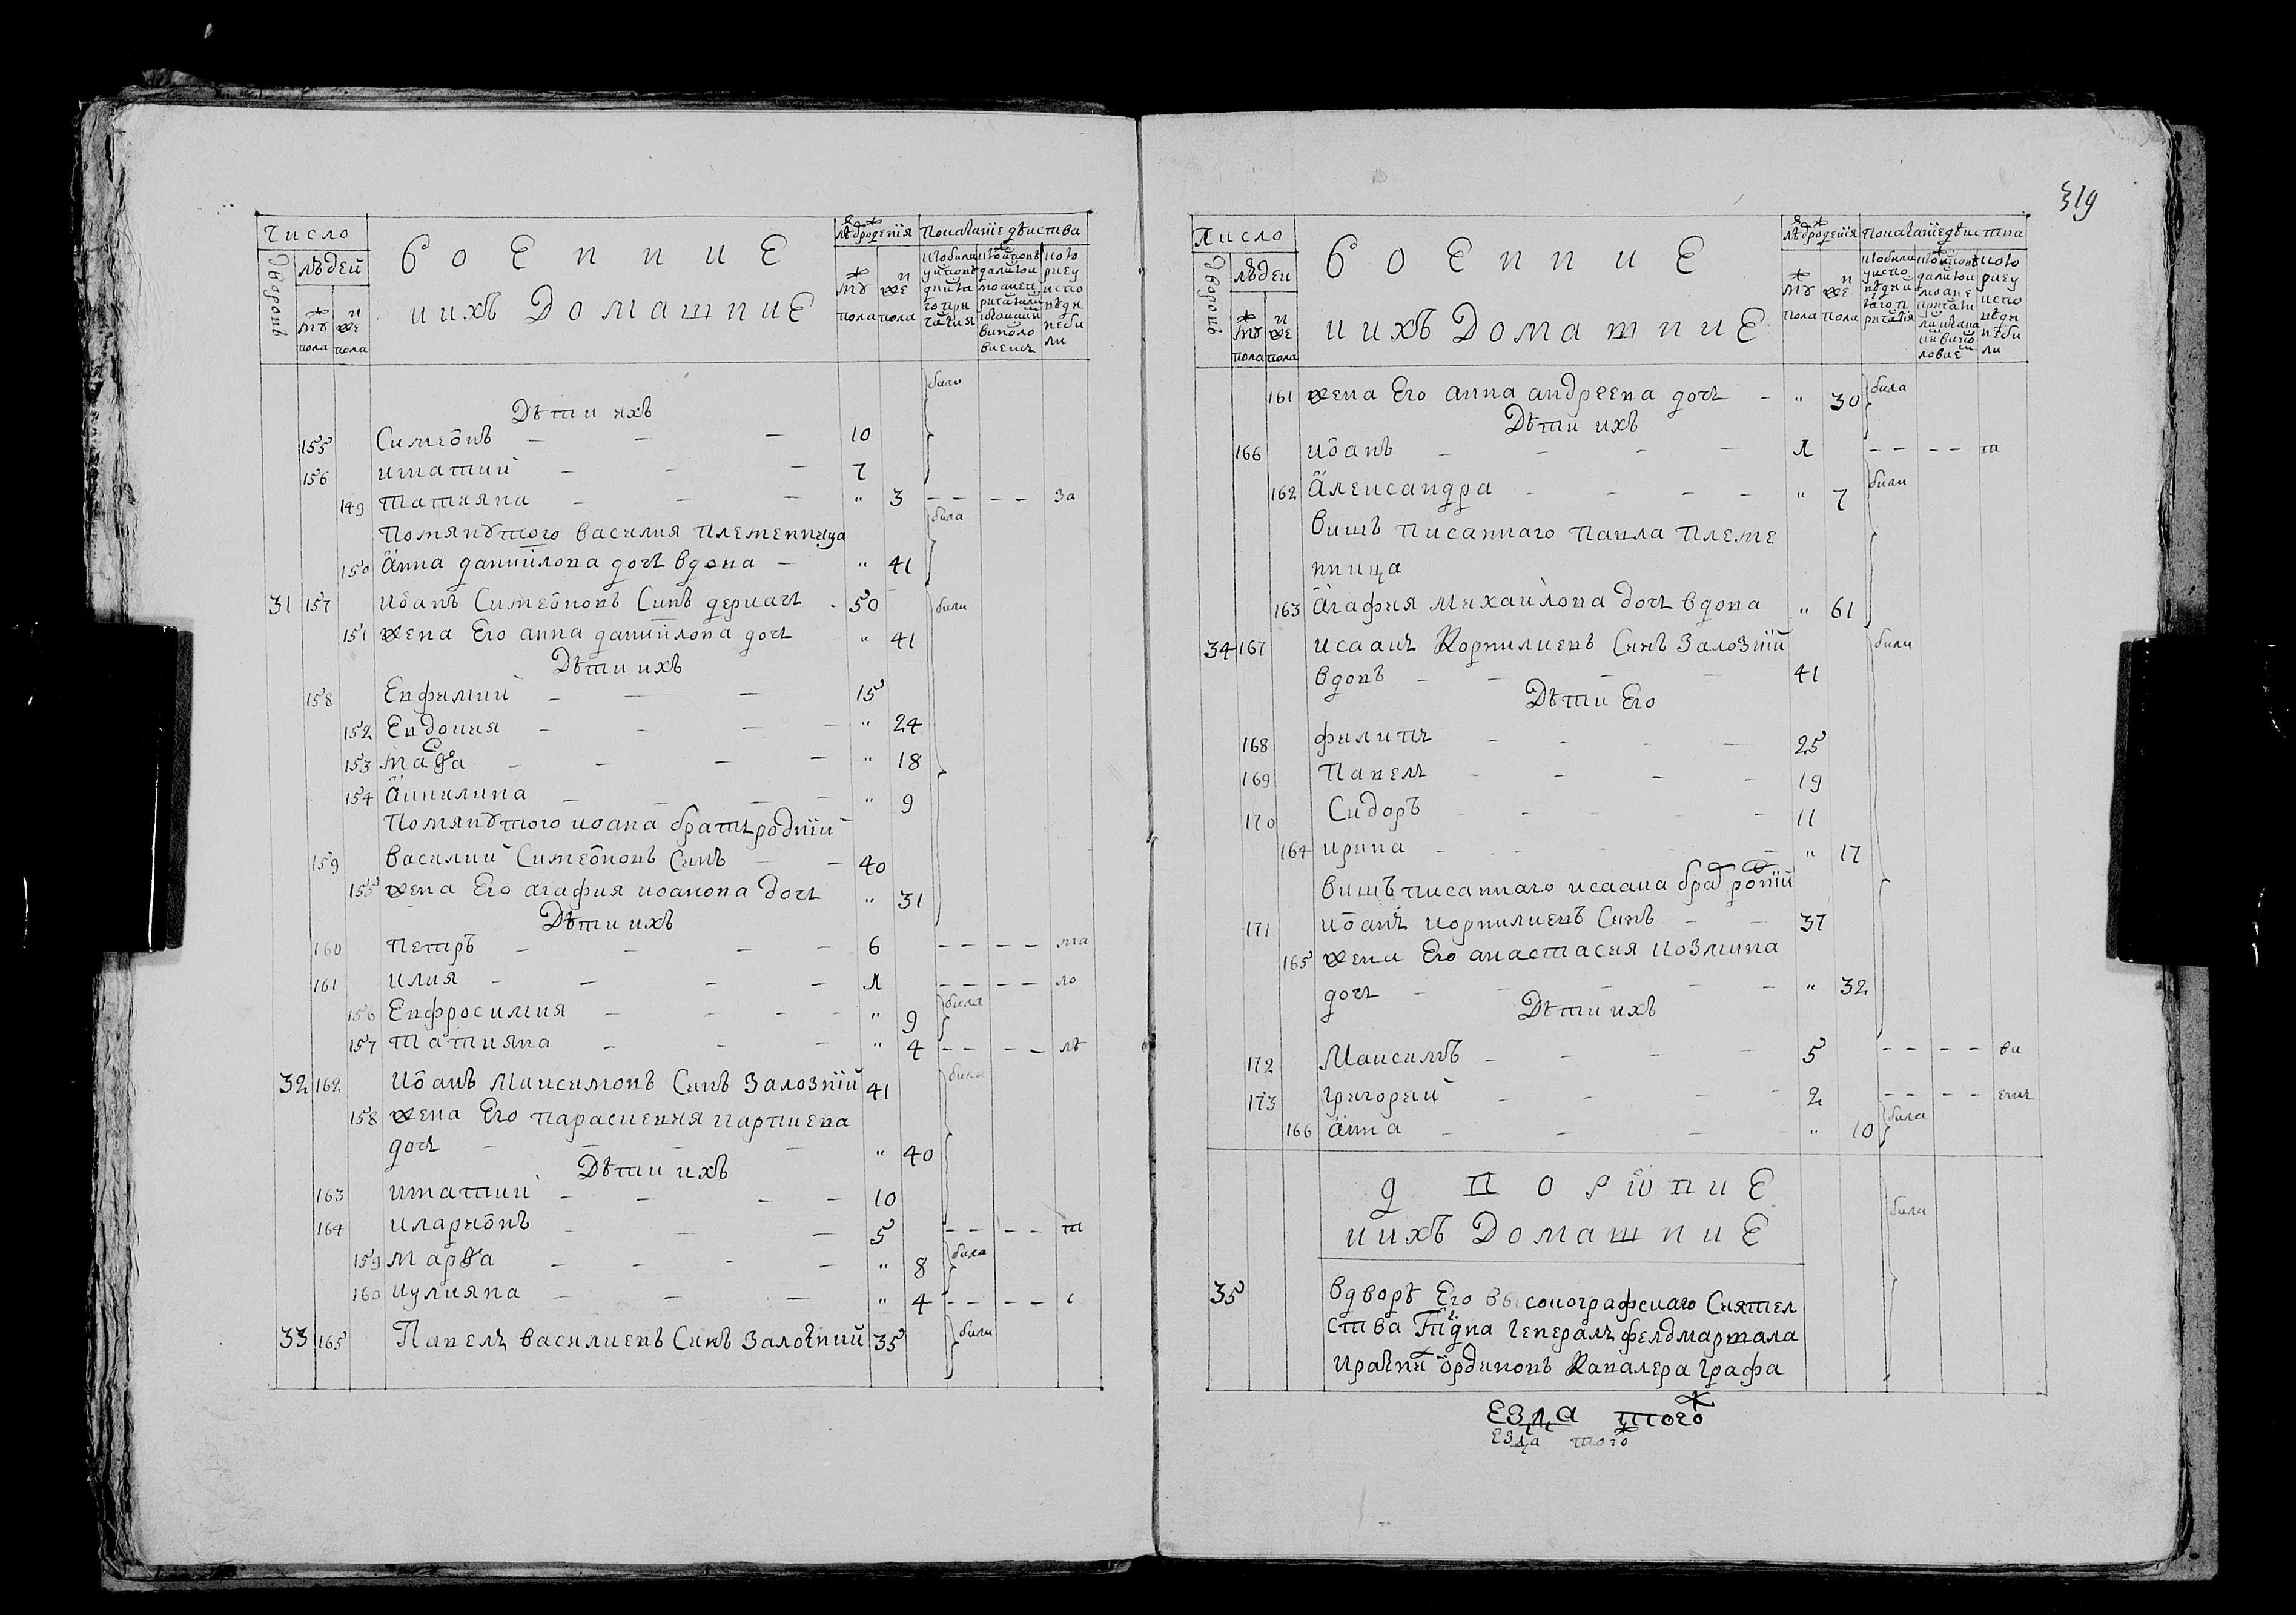 Число
Дворовъ
людей
муж пола
жен пола
военние
и ихъ домашние
лѣт от рождения
муж пола
жен пола
Показание дѣйства
Дѣти ихъ
были
155 Симеонъ — — — 10
156 Игнатий — — 7
149 Татияна — — — " 3 -- -- за
Помянутого Василия племенница была
150 Анна Даниилова дочь вдова — " 41
31 157 Иоанъ Симеоновъ Синъ Деркачъ 50 были
151 жена Его анна даниилова дочь " 41
Дѣти ихъ
158 Евфимий — — — 15
152 Евдокия — — — — " 24
153 Марфа — — — — " 18
154 Акилина — — — — " 9
Помянутого иоана братъ родний
159 василий Симеоновъ Синъ — — 40
155 жена Его агафия иоанова дочь " 31
Дѣти ихъ
160 Петръ — — — — 6 -- -- ма
161 илия — — — — 1 -- -- ло
156 Евфросиния — — — — " 9 была
157 Татияна — — — " 4 -- -- лѣ
32 162 Иоанъ Максимовъ Синъ Залозний 41 были
158 жена Его параскевия
дочь — — — " 40
Дѣти ихъ
163 игнатий — — — — 10
164 иларионъ — — 5 -- -- т
159 Марфа — — — — " 8 была
160 иулияна — — — " 4 -- -- с
33 165 Павелъ василиевъ Синъ Залозний 35 были
319
Число
Дворовъ
людей
муж пола
жен пола
военние
и ихъ домашние
лѣт от рождения
муж пола
жен пола
Показание дѣйства
161 жена Его анна андреева дочь — " 30 была
Дѣти ихъ
166 иоанъ — — — — 1 -- -- т
162 Александра — — — — " 7 были
Вишъ писаннаго Павла племе
нница
163 Агафия михайлова дочь вдова " 61
34 167 исаакъ Корнилиевъ Синъ Залозний были
вдовъ — — — — 41
Дѣти Его
168 филипъ — — — — 25
169 Павелъ — — — — 19
170 Сидоръ — — — — 11
164 ирина — — — — " 17
вишъписаннаго исаака брат родній
171 иоанъ корнилиевъ Синъ — — 37
165 жена Его анастасия козмина
дочь — — — — " 32
Дѣти ихъ
172 Максимъ — — — — 5 -- -- ва
173 григорий — — — — 2 -- -- енъ
166 Анна — — — — " 10 была
дворовие
и ихъ домашние
были
35 вдворѣ Его високографскаго Сиятел
ства Гдна Генералъ фелдмаршала
и разних ординовъ Кавалера графа